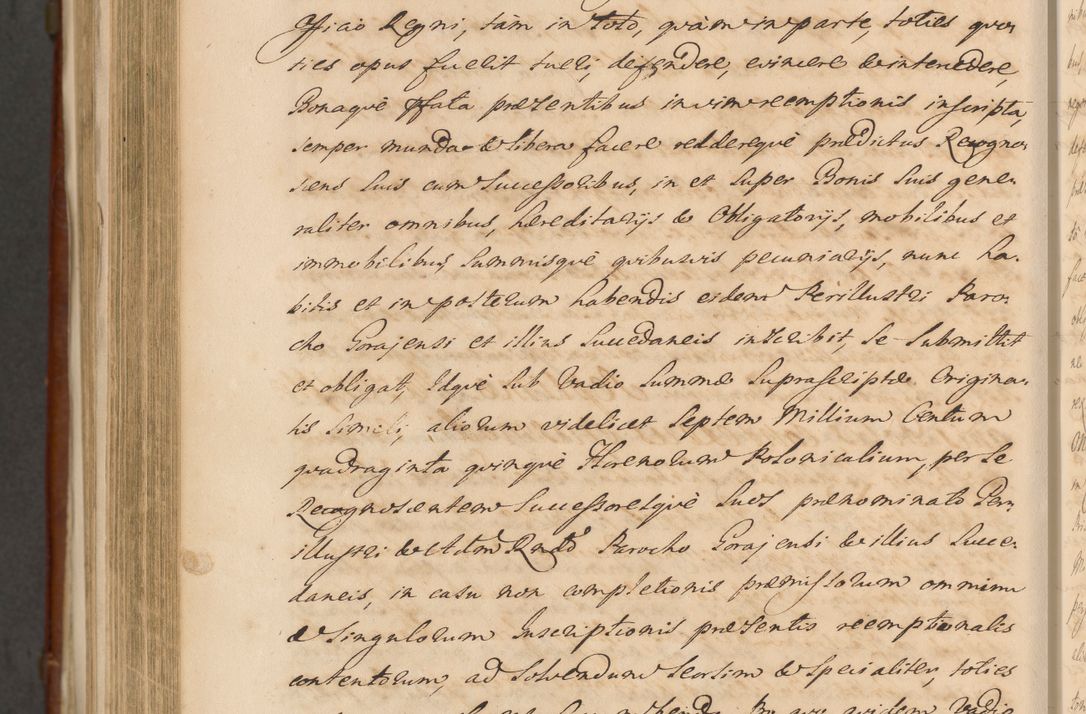 Officio Regni, tàm in toto, quàm in parte, toties quo-
ties opus fuerit tueri, defendere, evincere & intercedere,
Bonaquè pfata præsentibus in vim reemptionis inscripta,
semper munda & libera facere reddereque prædictus Recogno-
scens suis cum Successoribus, in et super Bonis suis gene-
raliter omnibus, hæreditarijs & Obligatorijs, mobilibus et
immobilibus, Summisquè quibusvis pecuniarijs, nunc ha-
bitis et in posterum habendis eidem Perillustri Paro-
cho Gorajensi et illius Succedaneis inscribit, se submittit
et obligat, Idquè sub Vadio Summæ Suprascriptæ Origina-
lis simili, aliorum videlicet Septem Millium Centum
quadraginta quinquè Florenorum Polonicalium, per se
Recognoscentem Successoresquè suos prænominato Per-
illustri & Adm Rndo Parocho Gorajensi & illius Succe-
daneis, in casu non completionis præmissorum omnium
& singulorum Inscriptionis præsentis reemptionalis
contentorum, ad solvendum seorsim & specialiter, toties